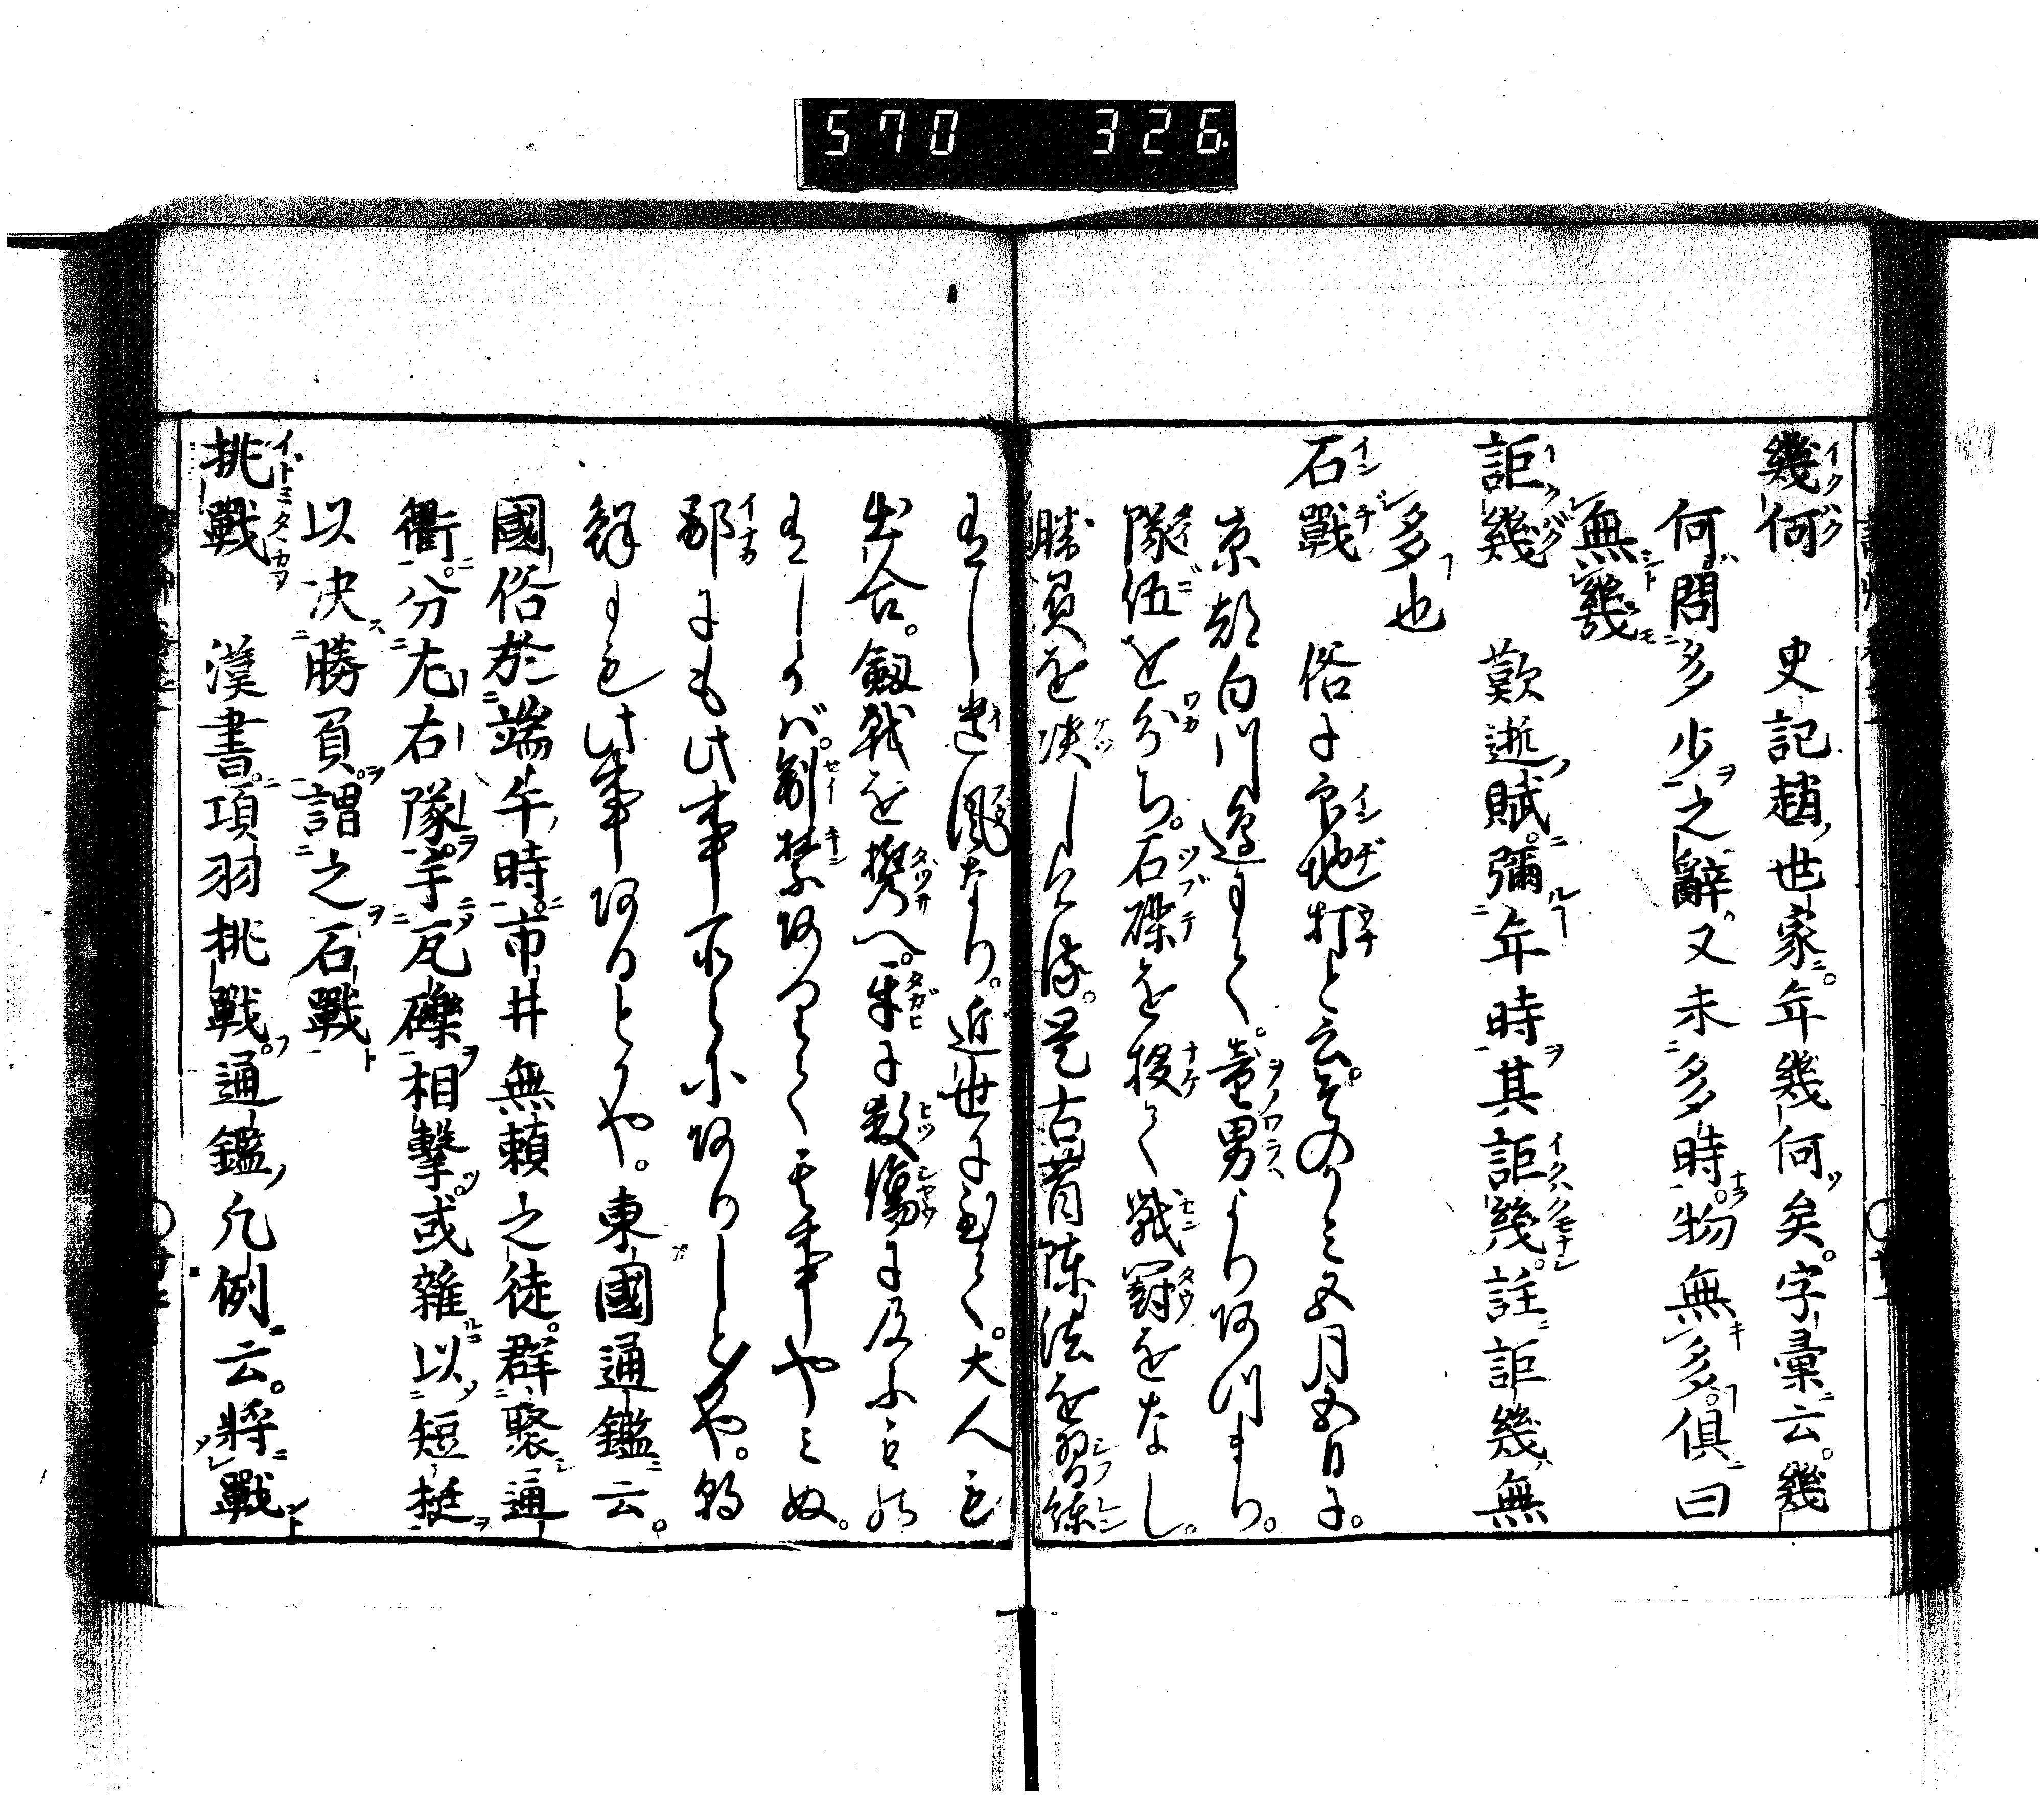 570 326
幾何 史記趙世家年幾何矣字彙云幾
何問多少之辭又未多時物無多俱曰
無幾
詎幾 歎逝賦彌年時其詎幾註詎幾無
多也
石戰 俗に印地打と云そのかミ五月五日に
京都白川邊にて童男よりあつまり
隊伍を分ち石礫を投て戰鬪をなし
勝負を决しける是古昔陣法を習練
し遺風なり近世に至て大人も
出合劔戟を携へ互に殺傷に及ふ
バ制禁ありて其事やミぬ
鄙にも此事所々にありしとや朝
鮮にも此事あるとかや東國通鑑云
國俗於端午時市井無頼之徒群聚通
衢分左右隊手瓦礫相撃或雜以短挺
以决勝負謂之石戰
挑戰 漢書項羽挑戰通鑑凡例云將戰